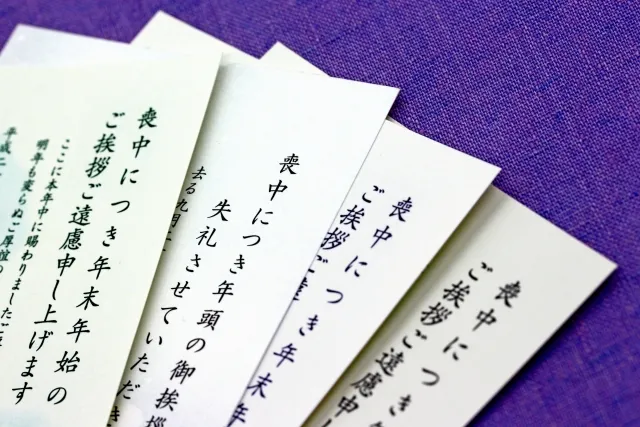 喪中につき年末年始の
ご挨拶ご遠慮申し上げます
ここに本年中に賜わりましたご
明年も変らぬご厚誼の
平成二
喪中につき年頭の御挨拶
失礼させていただき
去る九月
喪中につき年末年
ご挨拶ご
喪中につき年
ご挨拶ご遠慮申